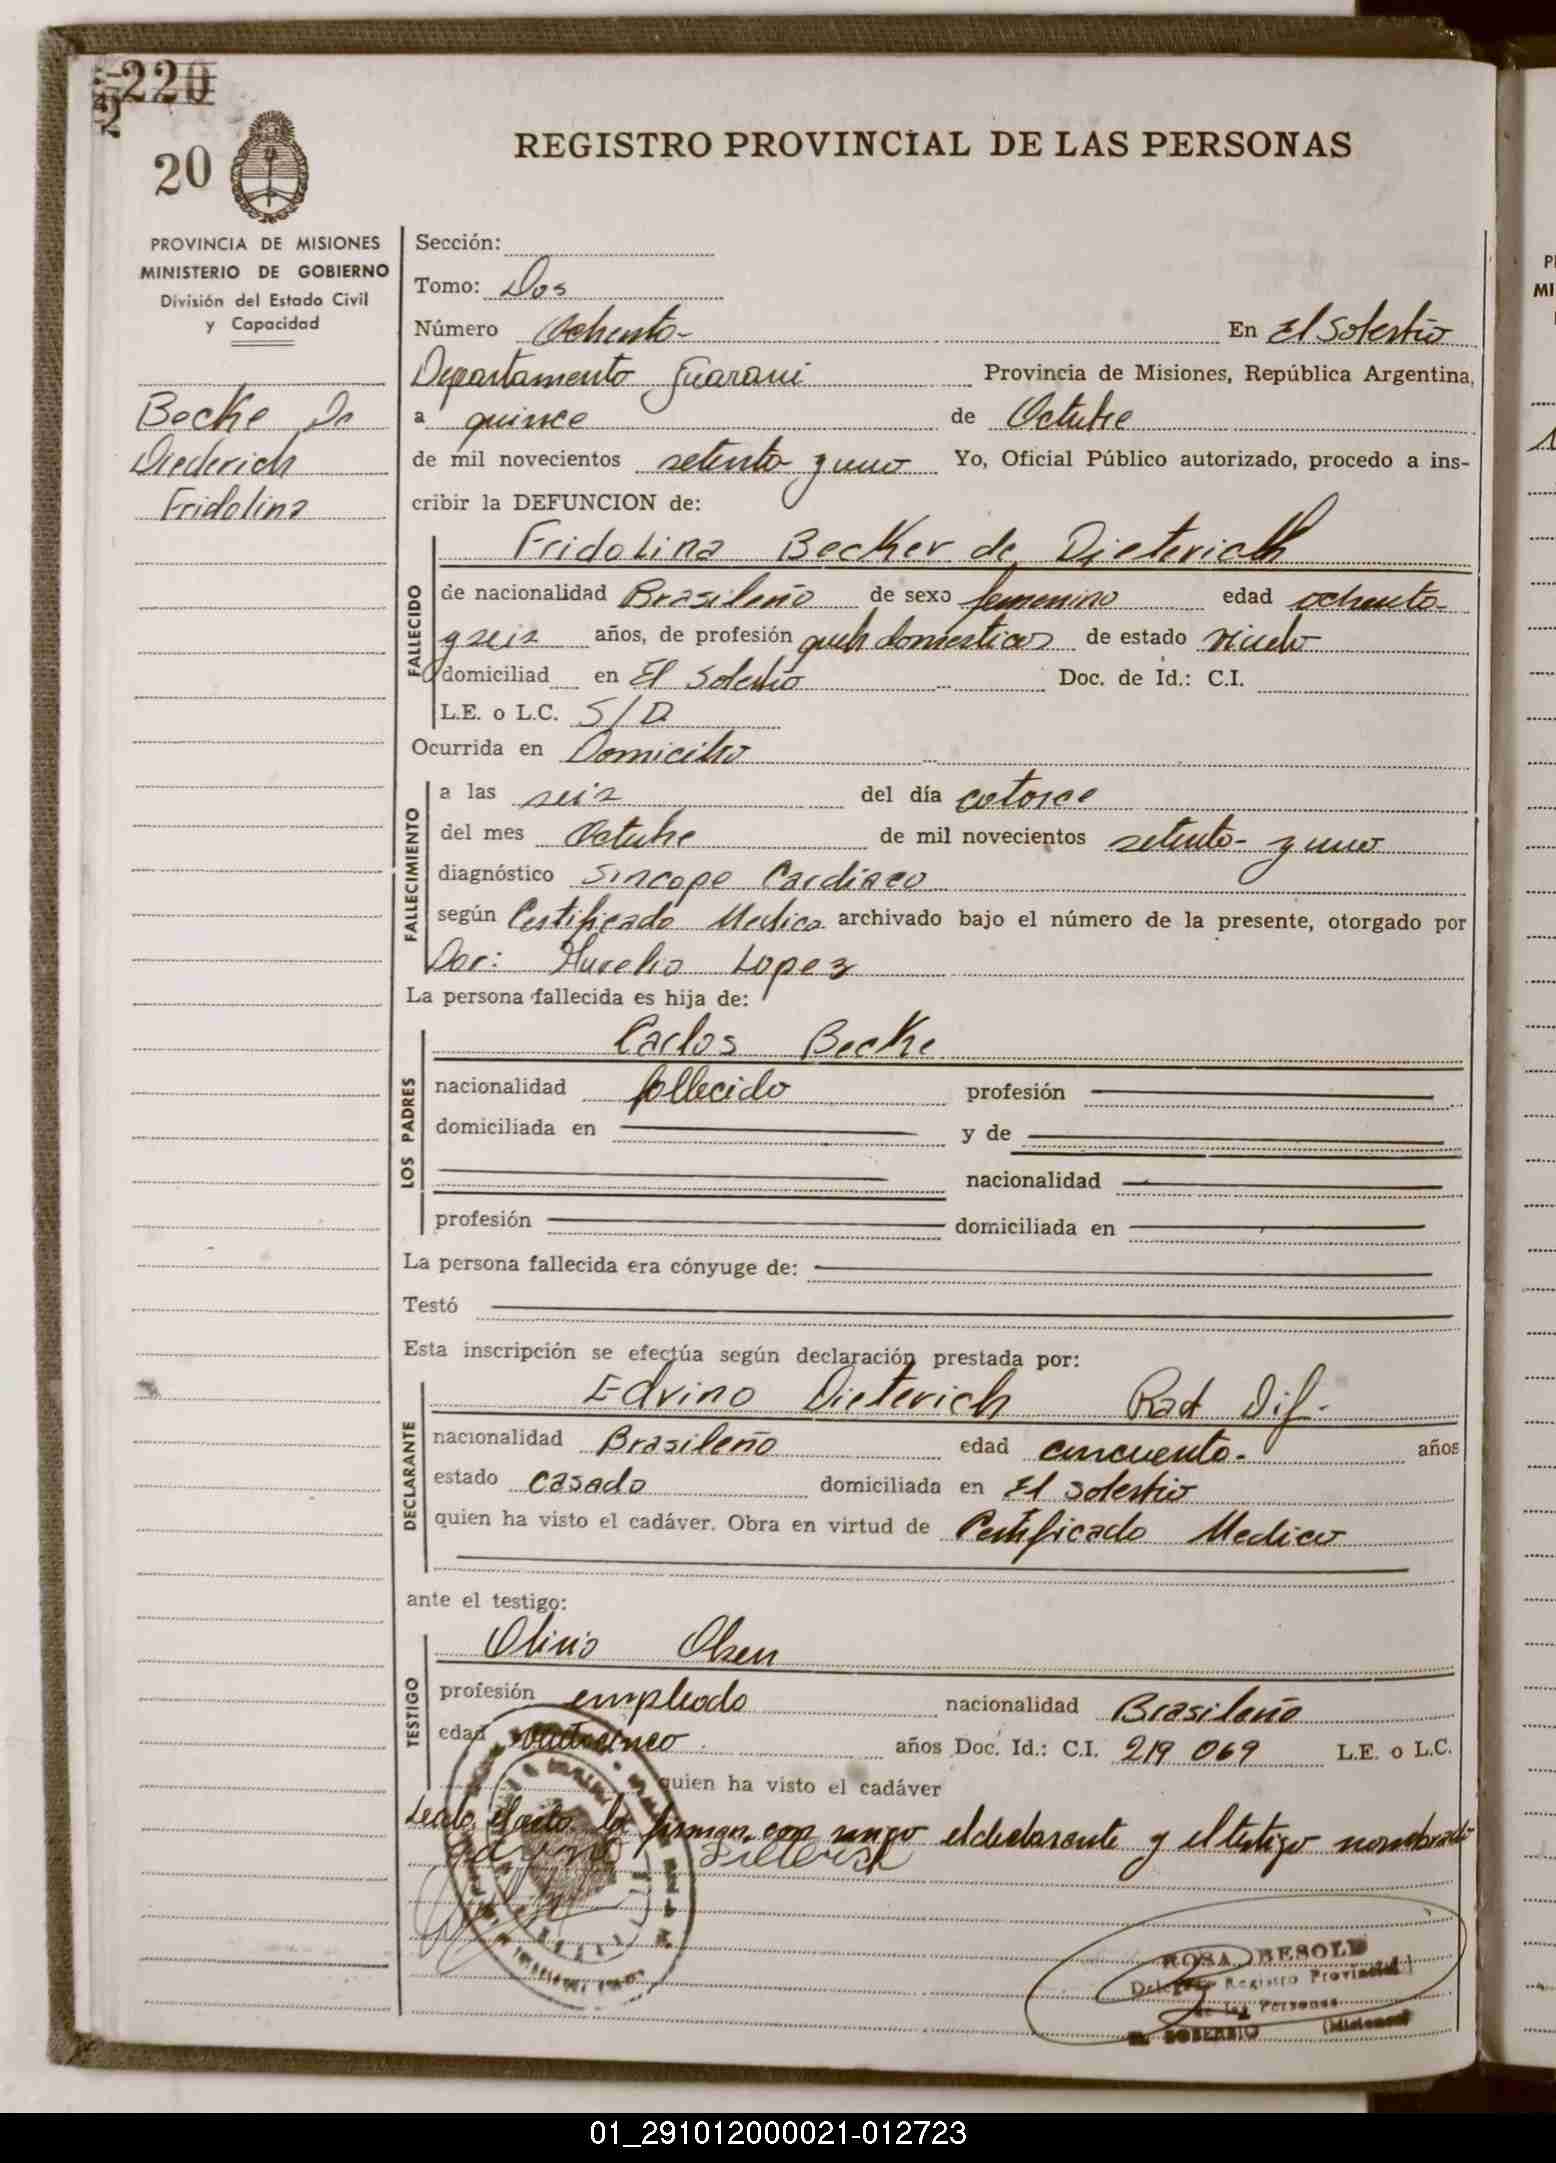 220
2
20
REGISTRO PROVINCIAL DE LAS PERSONAS
PROVINCIA DE MISIONES
MINISTERIO DE GOBIERNO
División del Estado Civil
y Capacidad
Becke De
Diederich
Fridolina
Sección:
Tomo: Dos
Número Ochenta- En El Soberbio
Departamento Guarani Provincia de Misiones, República Argentina,
a quince de Octubre
de mil novecientos setenta y uno Yo, Oficial Público autorizado, procedo a ins-
cribir la DEFUNCION de:
FALLECIDO
Fridolina Becker de Dieterich
de nacionalidad Brasileño de sexo femenino edad ochenta-
y seis años, de profesión queh domesticos de estado viudo
domiciliad en El Soberbio Doc. de Id.: C.I.
L.E. o L.C. S/D
Ocurrida en Domicilio
FALLECIMIENTO
a las seis del día catorce
del mes Octubre de mil novecientos setenta- y uno
diagnóstico Sincope Cardiaco
según Certificado Medico archivado bajo el número de la presente, otorgado por
Dor: Aurelio Lopez
La persona fallecida es hija de:
LOS PADRES
Carlos Becke
nacionalidad fallecido profesión
domiciliada en y de
nacionalidad
profesión domiciliada en
La persona fallecida era cónyuge de:
Testó
Esta inscripción se efectúa según declaración prestada por:
DECLARANTE
Edvino Dieterich Rad Dif-
nacionalidad Brasileño edad cincuenta- años
estado casado domiciliada en El Soberbio
quien ha visto el cadáver. Obra en virtud de Certificado Medico
ante el testigo:
TESTIGO
Olinio Olsen
profesión empleado nacionalidad Brasileño
edad veinticinco años Doc. Id.: C.I. 219 069 L.E. o L.C.
quien ha visto el cadáver
Leida el acta la firman con migo el declarante y el testigo nombrado
Edvino Dieterich
ROSA BESOLD
Delegada Registro Provincial
de las Personas
EL SOBERBIO (Misiones)
01_291012000021-012723